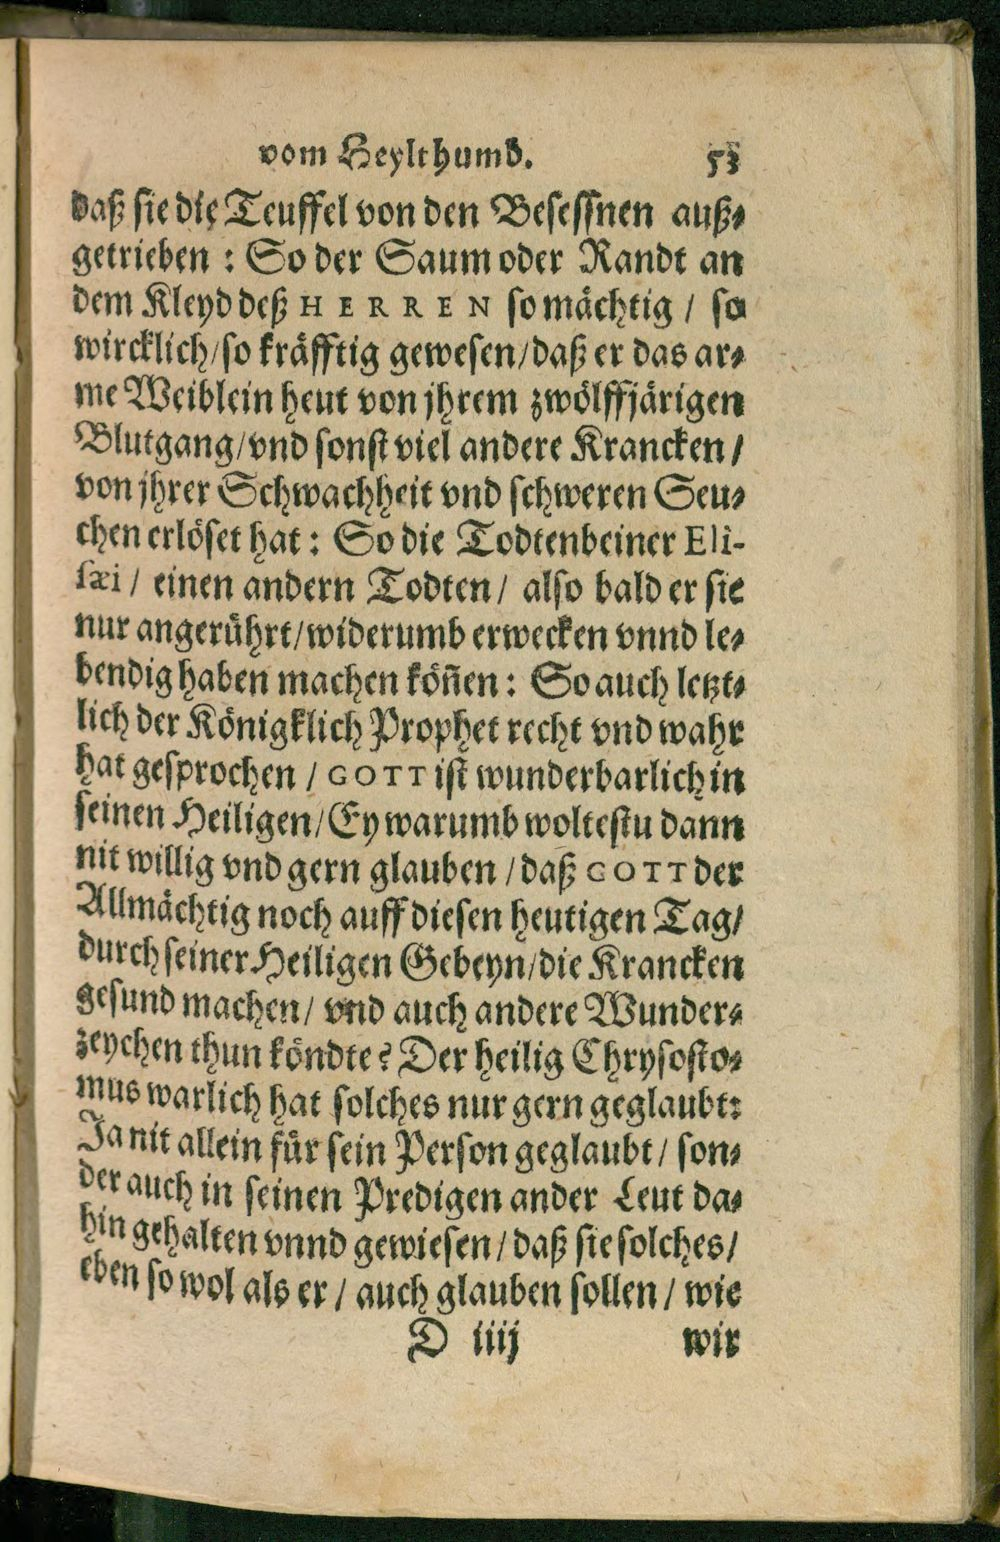 vom Heylthumb. 53
daß sie die Teuffel von den Besessnen auß⸗
getrieben : So der Saum oder Randt an
dem Kleyd deß HERREN so mächtig / so
wircklich / so kräfftig gewesen / daß er das ar⸗
me Weiblein heut von jhrem zwölffjärigen
Blutgang / vnd sonst viel andere Krancken /
von jhrer Schwachheit vnd schweren Seu⸗
chen erlöset hat : So die Todtenbeiner Eli-
sæi / einen andern Todten / also bald er sie
nur angerührt / widerumb erwecken vnnd le⸗
bendig haben machen köñen : So auch letzt⸗
lich der Königklich Prophet recht vnd wahr
hat gesprochen / GOTT ist wunderbarlich in
seinen Heiligen / Ey warumb woltestu dann
nit willig vnd gern glauben / daß GOTT der
Allmächtig noch auff diesen heutigen Tag /
durch seiner Heiligen Gebeyn / die Krancken
gesund machen / vnd auch andere Wunder⸗
zeychen thun köndte? Der heilig Chrysosto⸗
mus warlich hat solches nur gern geglaubt:
Ja nit allein für sein Person geglaubt / son⸗
der auch in seinen Predigen ander Leut da⸗
hin gehalten vnnd gewiesen / daß sie solches /
eben so wol als er / auch glauben sollen / wie
D iiij wir